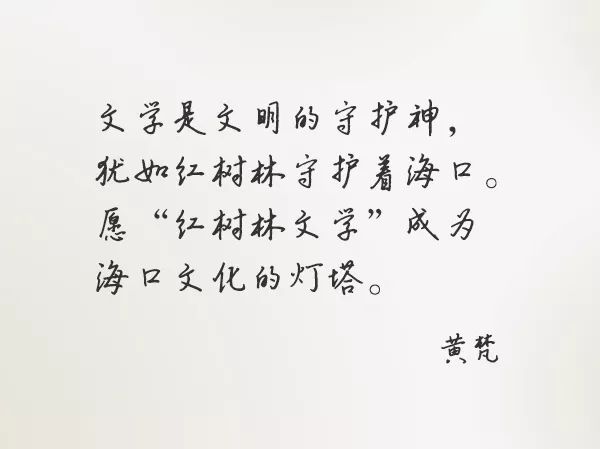 文学是文明的守护神，
犹如红树林守护着海口。
愿“红树林文学”成为
海口文化的灯塔。
黄梵